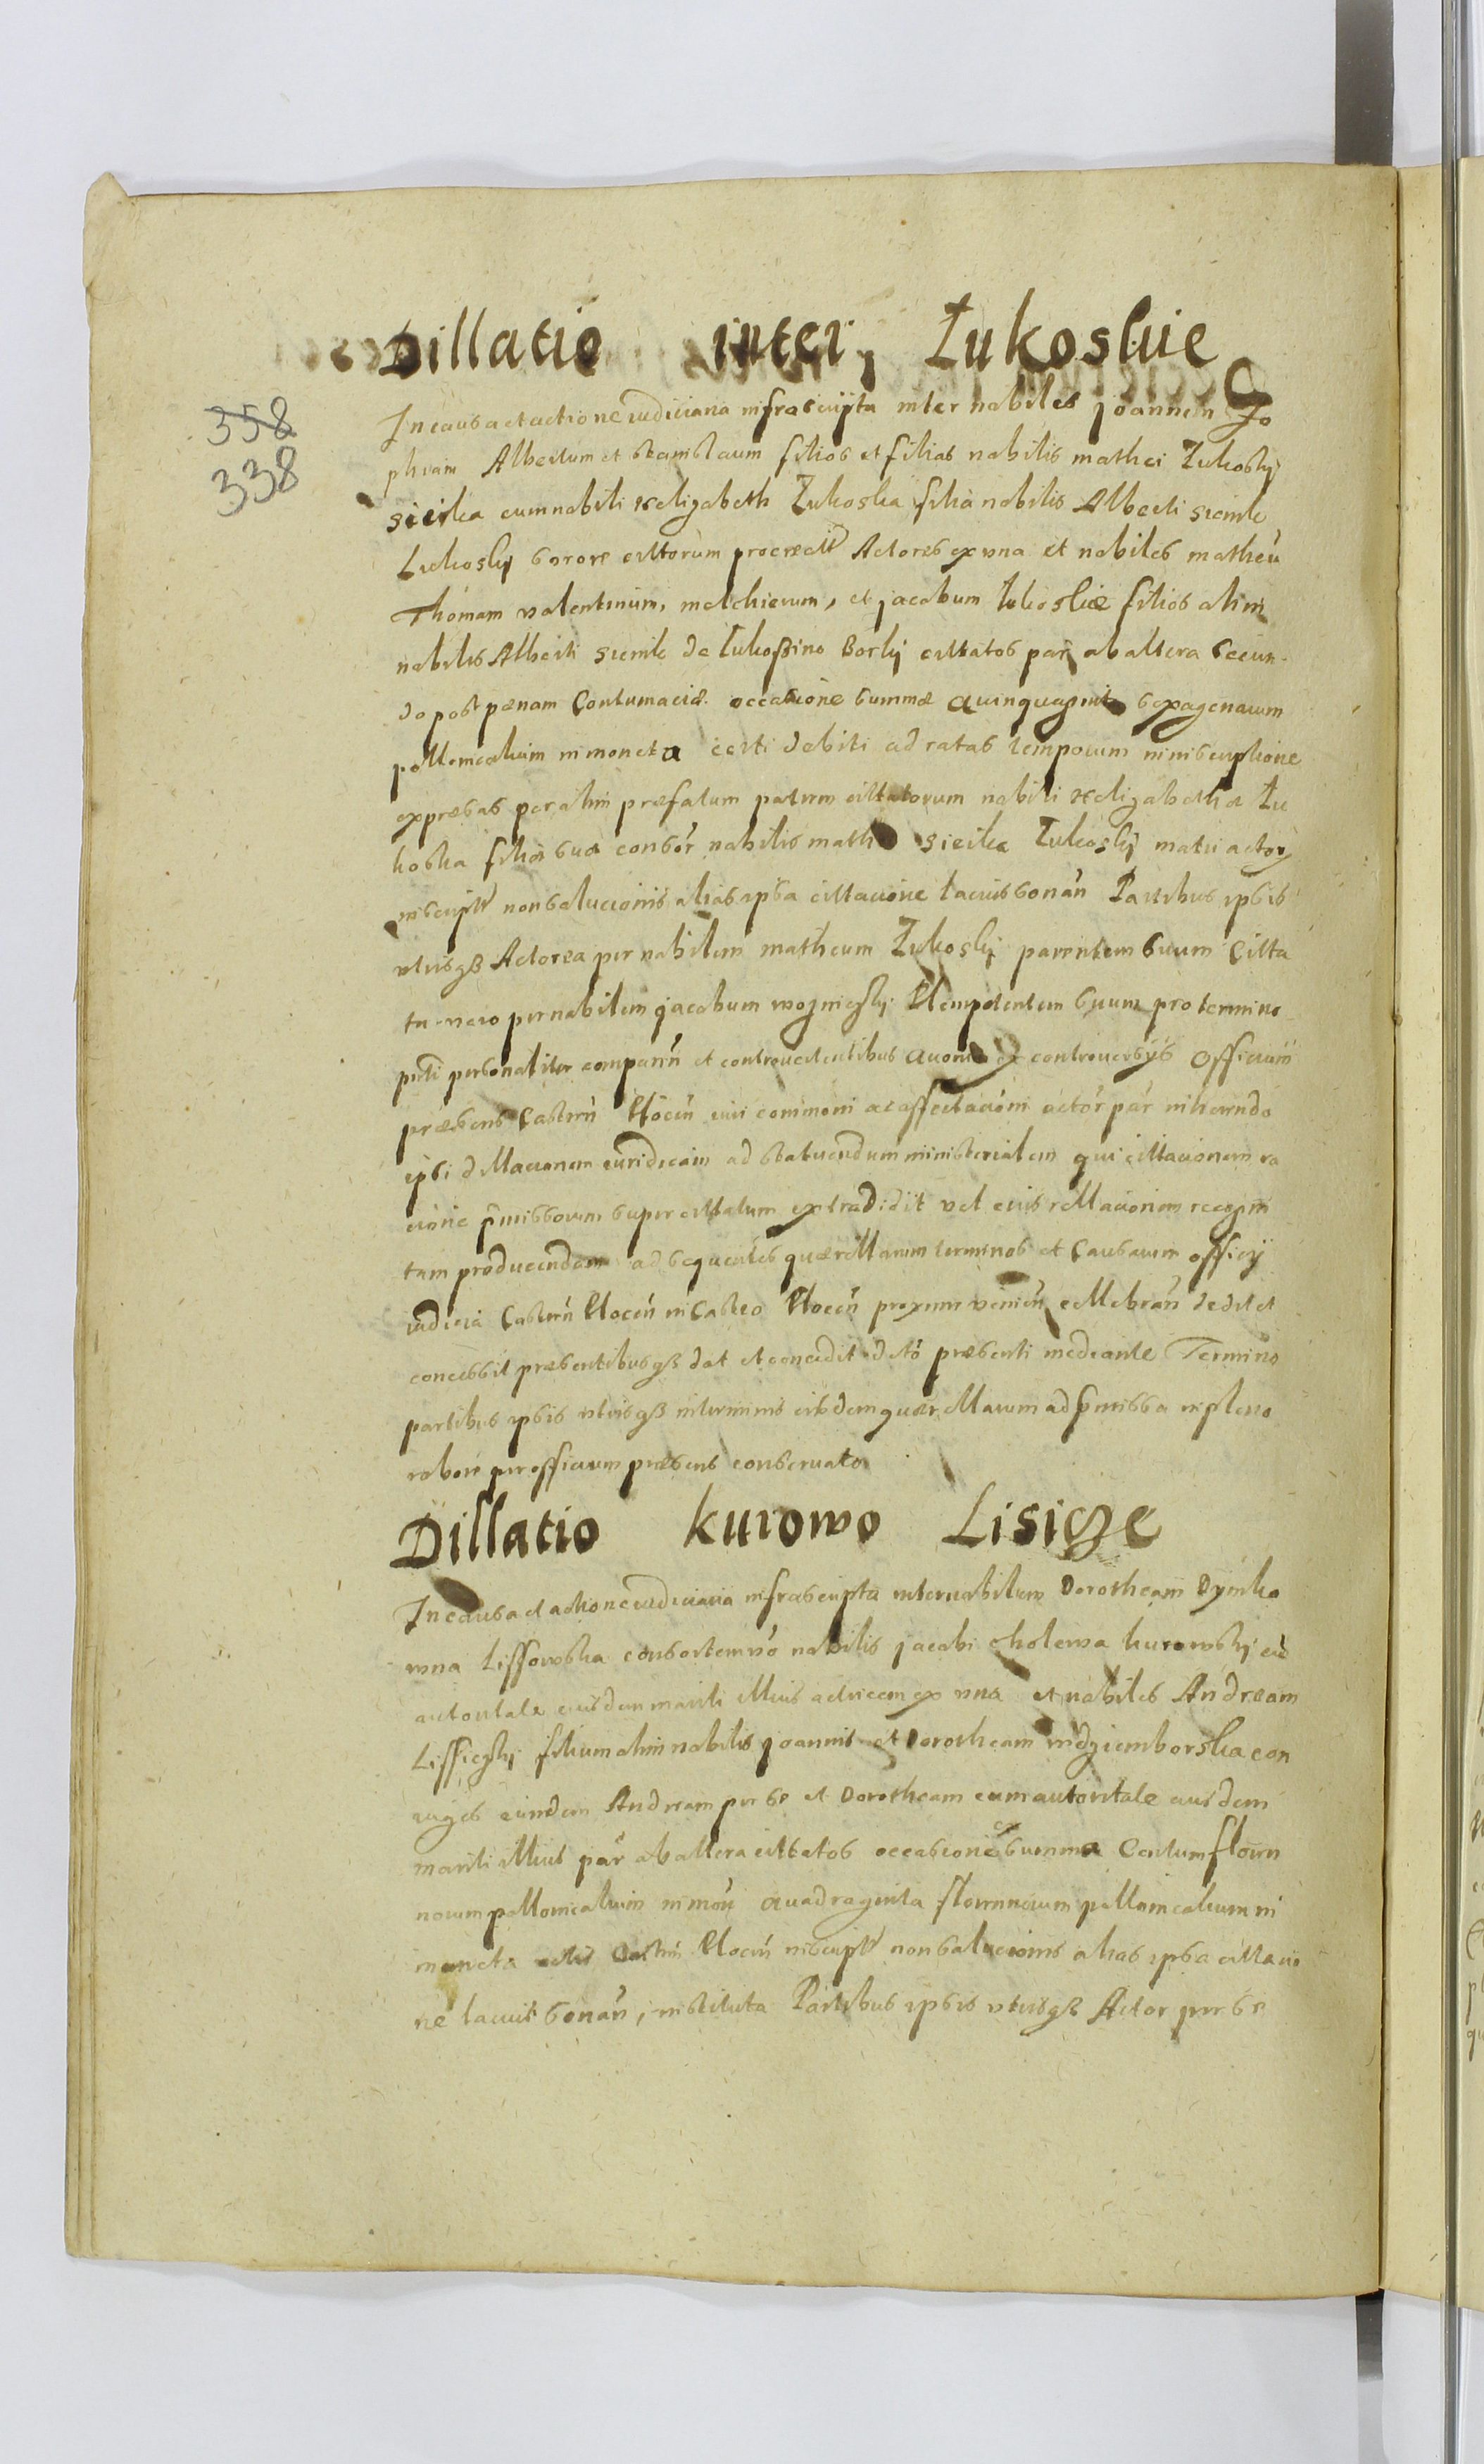 Dillatio inter Łukoskie
358
338
In causa et actione iudiciaria infrascripta inter nobiles Joannem Zo
phiam Albertum et stanislaum filios et filias nobilis mathei Łukoskÿ
sieika cum nobili Helizabeth Łukoska filia nobilis Alberti
Łukoskÿ sorore cittatorum procreatt Actores ex vna et nobiles matheū
Thomam valentinum, melchierum, et jacobum łukoskie filios olim
nobilis Alberti de łukoßino Borkÿ cittatos par ab altera secun
do post pænam Contumaciæ occasione summæ quinquaginta sexagenarum
pollonicalium in moneta certi debiti ad ratas temporum in inscriptione
expressas per olim præfatum patrem cittatorum nobili Helizabethæ Łu
koska filiæ suæ consor nobilis math sieika Łukoskÿ matri actor
inscriptt non solucionis alias ipsa cittacione lacius sonan Partibus ipsis
vtrisqß Actorea per nobilem matheum Łukoskÿ parentem suum Citta
ta vero per nobilem jacobum wozniczkÿ Plenipotentem suum pro termino
pnti personaliter comparen et controvertentibus quorum ex controversÿs Officium
præsens Castren Plocen ac affectacioni actor par inherendo
ipsi dillacionem iuridicam ad statuendum ministerialem qui cittacionem ra
cione pmissorum super cittatum extradidit vel eius rellacionem
tam producendam ad sequentes quærellarum terminos et Causarum officÿ
iudicia Castren Plocen in Castro Plocen proxime venien cellebran dedit et
concessit præsentibusqß dat et concedit dato præsenti mediante Termino
partibus ipsis vtrisqß in terminis eisdem quærellarum ad pmissa in pleno
robore per officium præsens conseruato
Dillatio kurowo Lisicze
In causa et actione iudiciaria infrascripta inter nobilem Dorotheam Dÿmko
wna Lissowska consortem vo nobilis jacobi cholewa kurowskÿ cū
autoritate eiusdem mariti illius actricem ex vna et nobiles Andream
Lissiczkÿ filium olim nobilis joannis et Dorotheam con
iuges eundem Andream per se et Dorotheam cum autoritate eiusdem
mariti illius par ab altera cittatos occasione ex summa Centum floren
norum pollonicalium in mon quadraginta florennorum pollonicalium in
moneta actis Castren Plocen inscriptt non solucionis alias ipsa cittacio
ne lacius sonan, instituta Partibus ipsis vtrisqß Actor per se